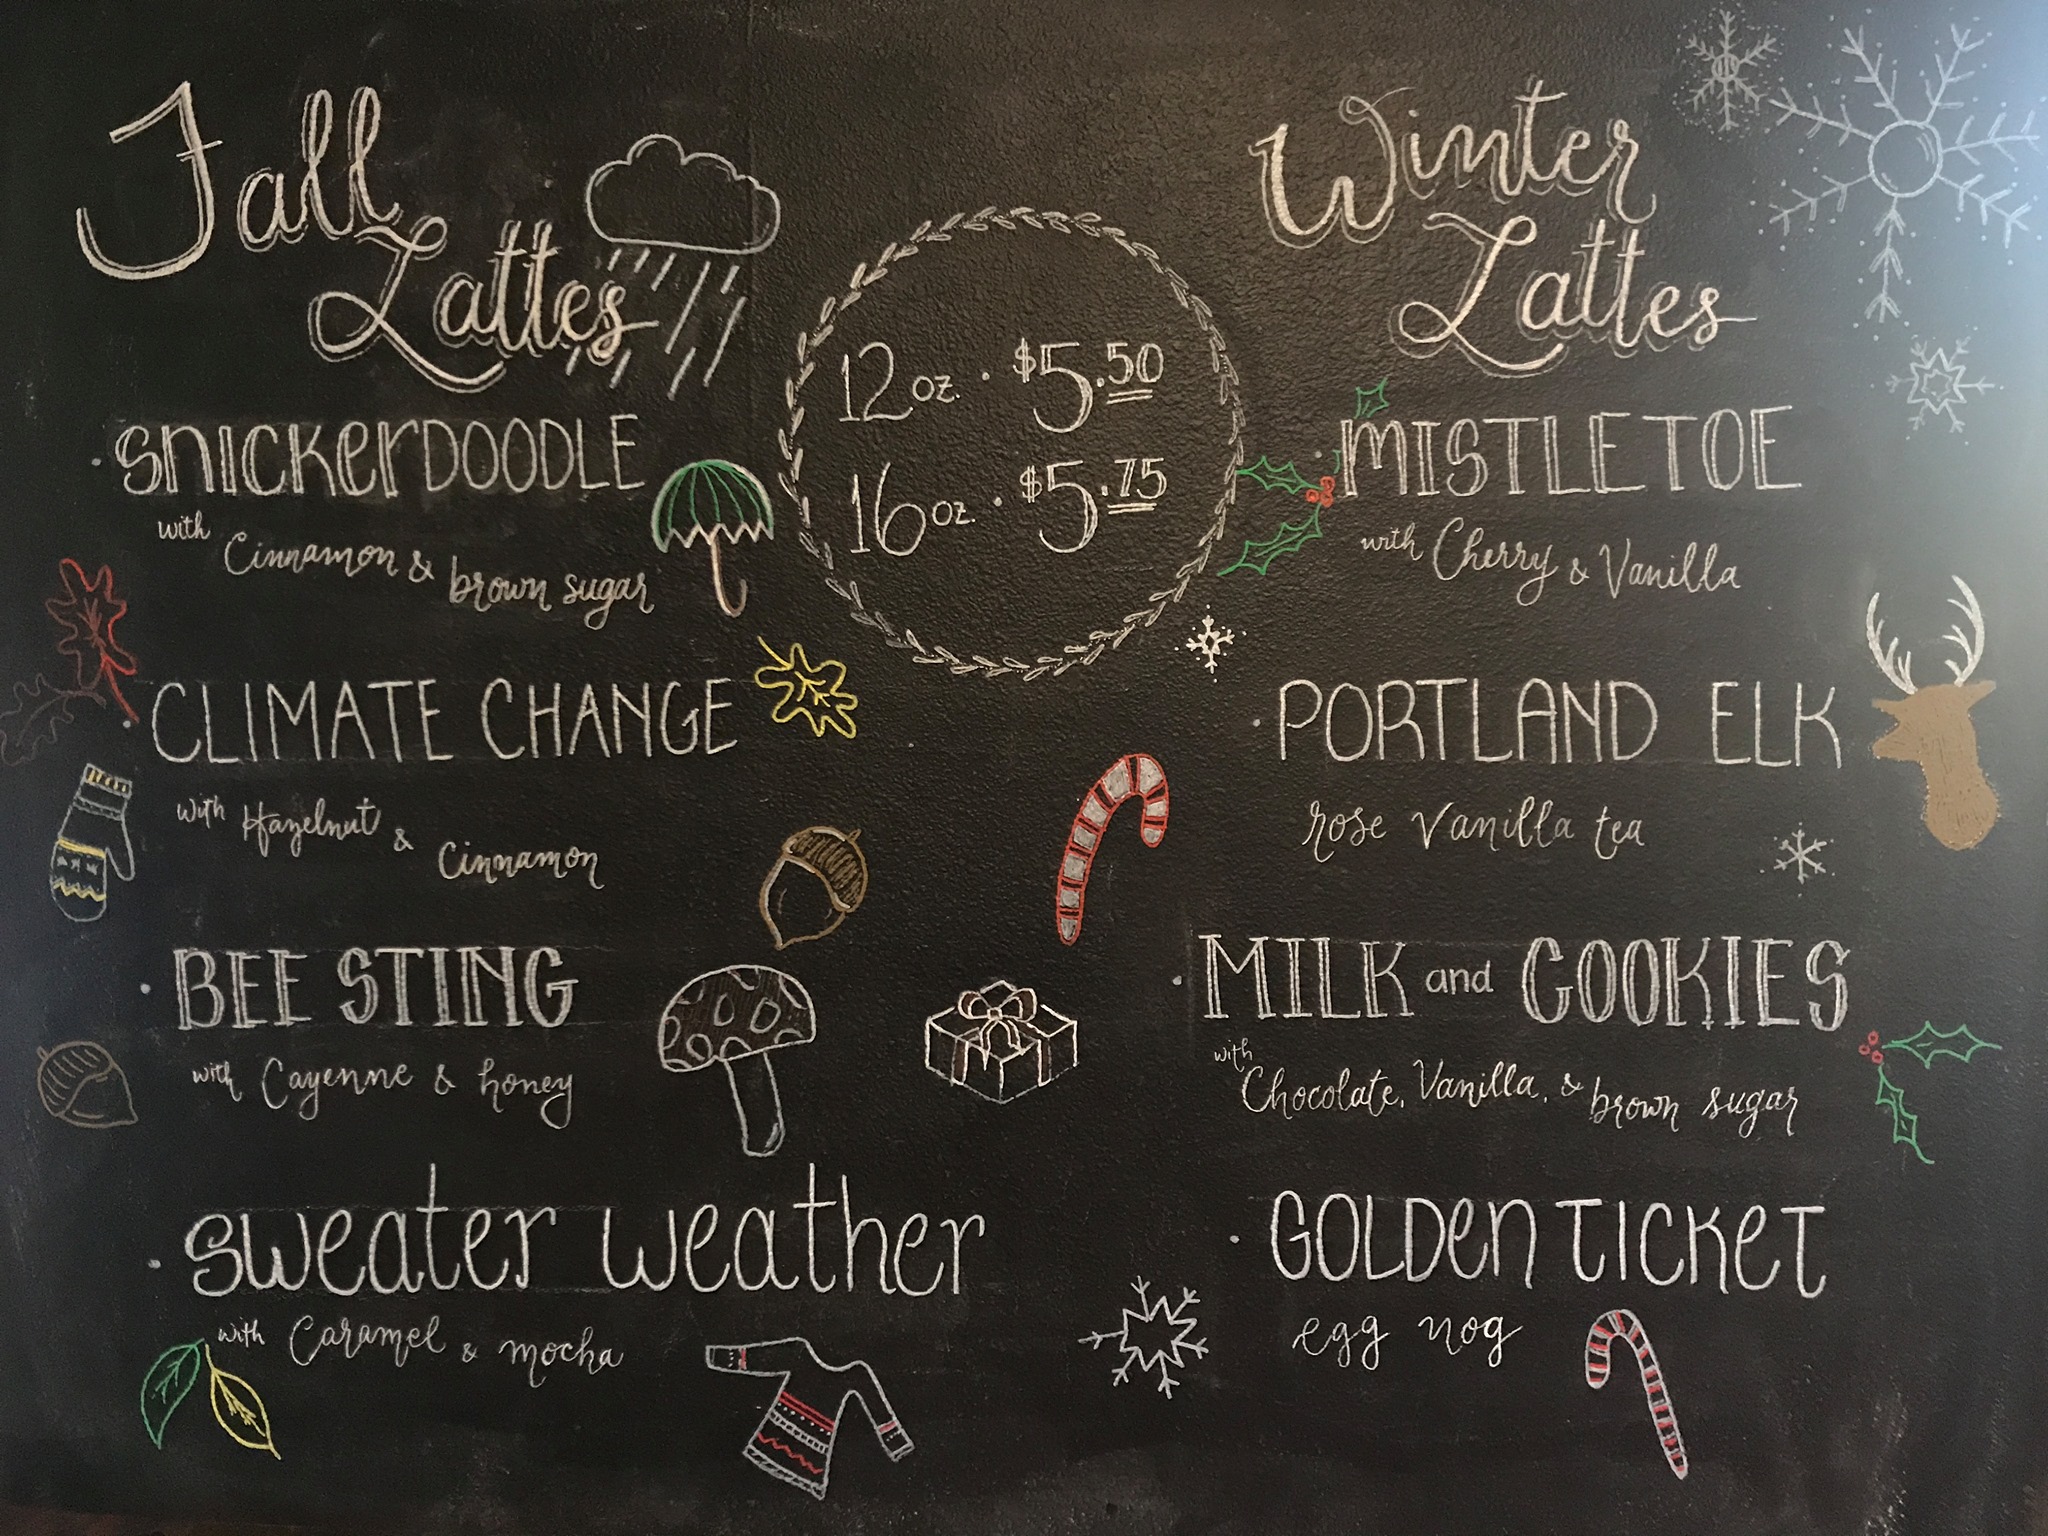 Fall
Lattes
SnickerDOODLE
with Cinnamon & brown sugar
CLIMATE CHANGE
with Hazelnut & Cinnamon
BEE STING
with Cayenne & honey
Sweater weather
with Caramel & mocha
12 oz. · $5.50
16 oz. · $5.75
Winter
Lattes
MISTLETOE
with Cherry & Vanilla
PORTLAND ELK
rose Vanilla tea
MILK and COOKIES
with Chocolate, Vanilla, & brown sugar
GOLDEN TICKET
egg nog